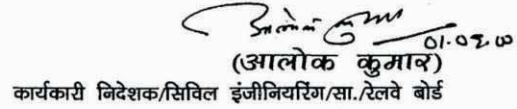 आलोक कुमार
(आलोक कुमार)
कार्यकारी निदेशक/सिविल इंजीनियरिंग/सा./रेलवे बोर्ड